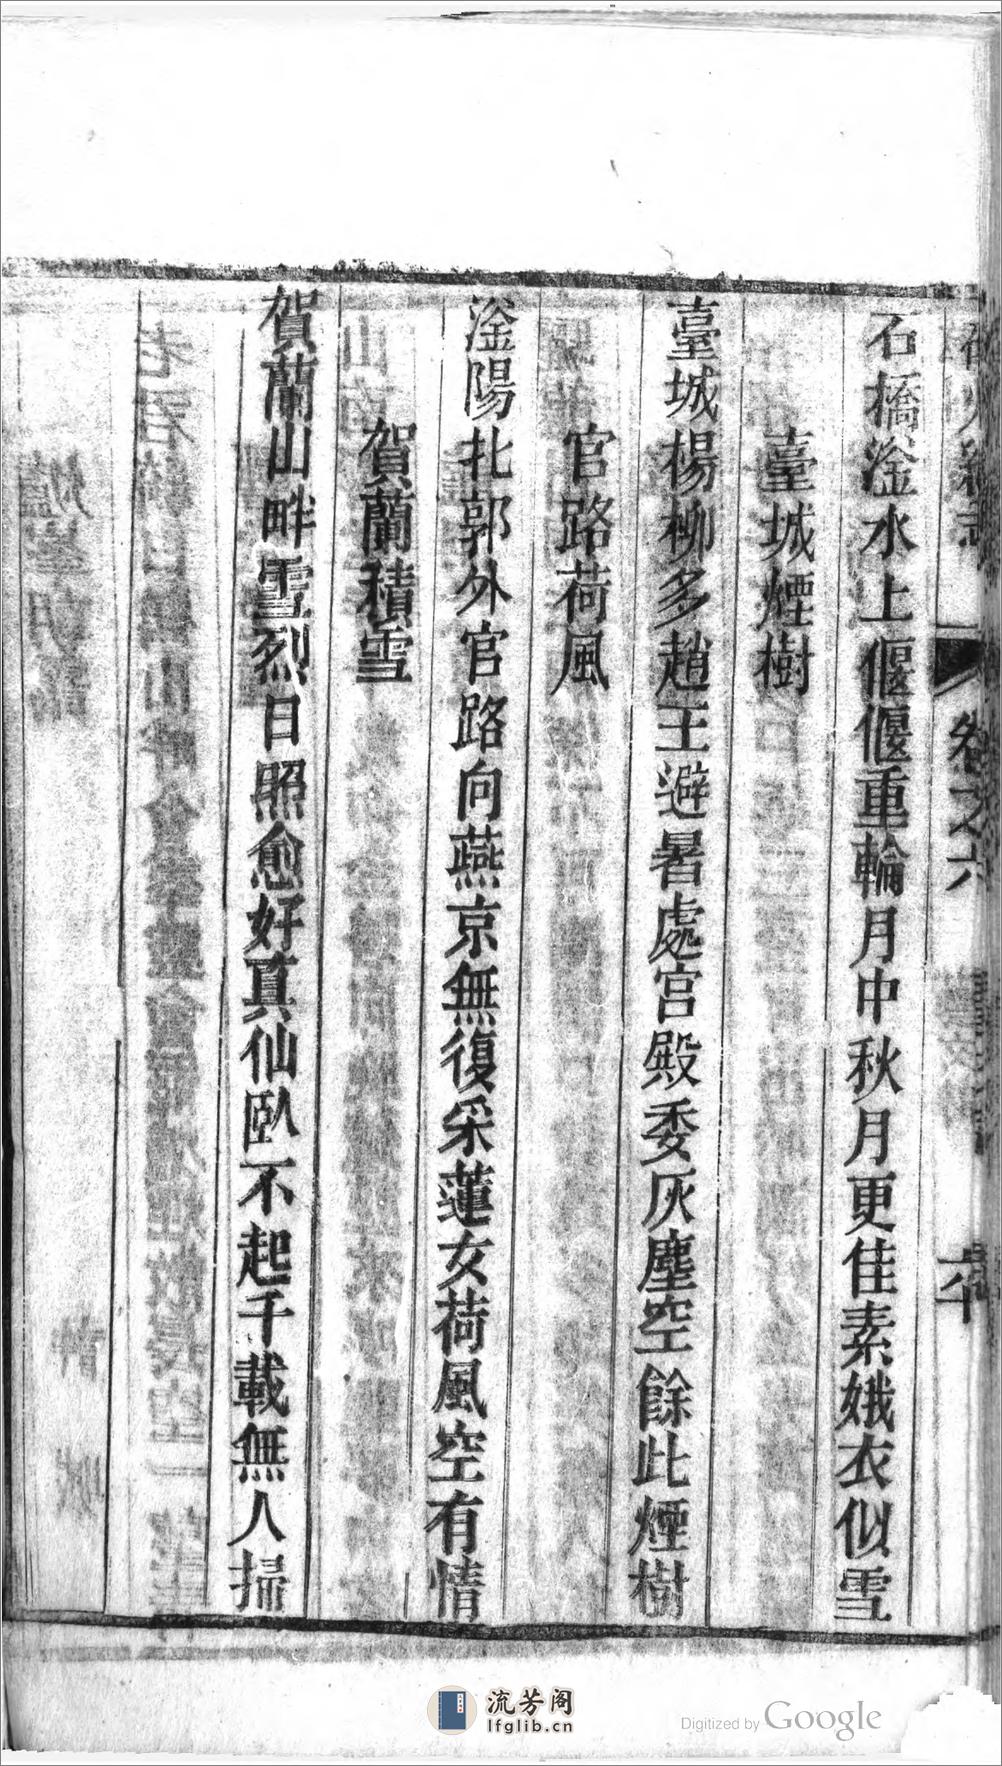 石橋滏水上偃偃重輪月中秋月更佳素娥衣似雪
臺城煙樹
臺城楊柳多趙王避暑處宮殿委灰塵空餘此煙樹
官路荷風
滏陽北郭外官路向燕京無復采蓮女荷風空有情
賀蘭積雪
賀蘭山畔雪烈日照愈好真仙臥不起千載無人掃
卷之六
流芳阁
lfglib.cn
Digitized by Google